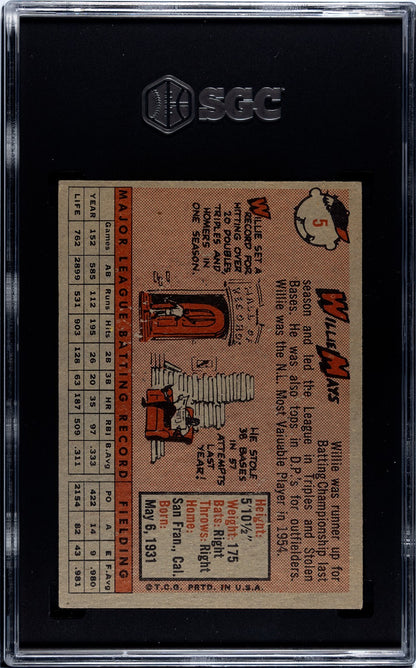 SGC
5
WILLIE MAYS
Willie was runner up for
Batting Championship last
season and led the League in Triples and Stolen
Bases. He was also tops in D.P.'s for outfielders.
Willie was the N.L. Most Valuable Player in 1954.
WILLIE SET A
RECORD FOR
HITTING OVER
20 DOUBLES
TRIPLES AND
HOMERS IN
ONE SEASON.
HE STOLE
38 BASES
IN 57
ATTEMPTS
LAST
YEAR!
Height:
5'10½"
Weight: 175
Bats: Right
Throws: Right
Home:
San Fran., Cal.
Born:
May 6, 1931
MAJOR LEAGUE BATTING RECORD FIELDING
Games AB Runs Hits 2B 3B HR RBI B.Avg PO A E F.Avg
YEAR 152 585 112 195 26 20 35 97 .333 422 14 9 .980
LIFE 762 2899 531 903 128 63 187 509 .311 2154 82 43 .981
©T.C.G. PRTD. IN U.S.A.